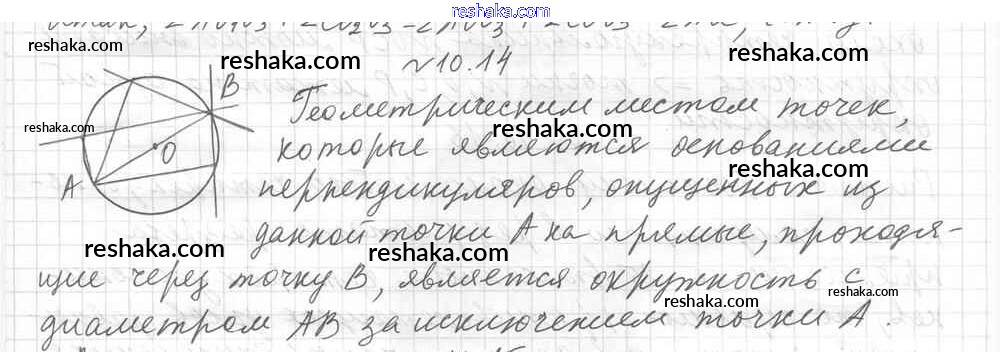 www.reshaka.com
Итак,
reshaka.com
reshaka.com
reshaka.com
№10.14
B
Геометрическим местом точек,
reshaka.com
reshaka.com
O
которые являются основаниями
reshaka.com
A
перпендикуляров, опущенных из
данной точки A на прямые, проходя-
reshaka.com
reshaka.com
reshaka.com
щие через точку B, является окружность с
reshaka.com
reshaka.com
диаметром AB за исключением точки A.
reshaka.com